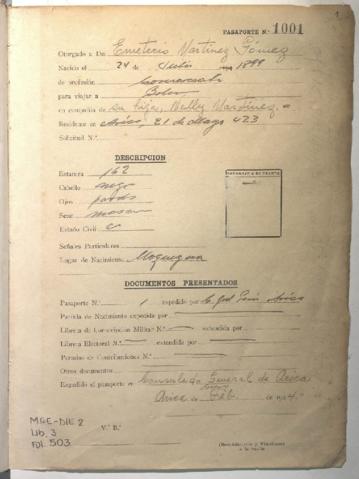 PASAPORTE N.º 1001
Otorgado a Dn. Emeterio Martinez Gómez
Nacido el 24 de Julio 1899
de profesión comerciante
para viajar a
en compañía de su hija, Nelly Martinez
Residente en Arica, 21 de Mayo 423
Solicitud N.º
DESCRIPCION
Estatura 162
Cabello negro
Ojos pardos
Sexo mascu
Estado Civil c
Señales Particulares
Lugar de Nacimiento Moquegua
DOCUMENTOS PRESENTADOS
Pasaporte N.º 1 expedido por C. Gral Perú Arica
Partida de Nacimiento expedida por
Libreta de Conscripción Militar N.º extendida por
Libreta Electoral N.º extendida por
Permiso de Contribuciones N.º
Otros documentos
Expedido el pasaporte en Consulado General de Arica
Arica de Feb. de
V.º B.º
MGE-DIE 2
Lib. 3
Fol. 503
a la vuelta